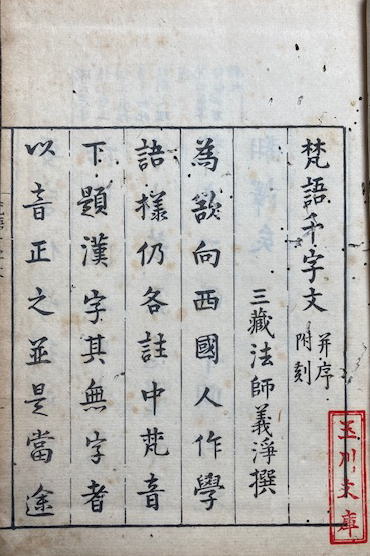 梵語千字文 并序附刻
三藏法師義淨撰
為欲向西國人作學
語樣仍各註中梵音
下題漢字其無字者
以音正之並是當途
玉川文庫